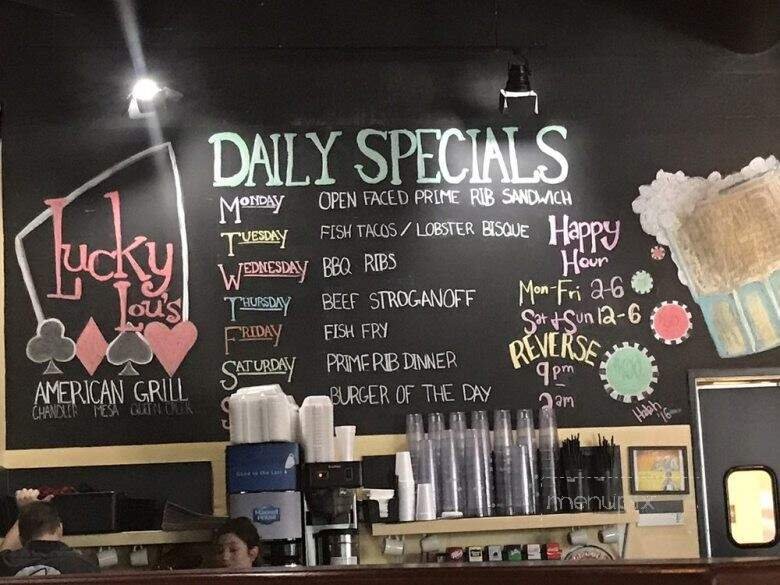 DAILY SPECIALS
MONDAY OPEN FACED PRIME RIB SANDWICH
TUESDAY FISH TACOS / LOBSTER BISQUE
WEDNESDAY BBQ RIBS
THURSDAY BEEF STROGANOFF
FRIDAY FISH FRY
SATURDAY PRIME RIB DINNER
BURGER OF THE DAY
Lucky
Lou's
AMERICAN GRILL
CHANDLER MESA QUEEN CREEK
Happy
Hour
Mon-Fri 2-6
Sat & Sun 12-6
REVERSE
9pm
2am
Good to the Last
Maxwell
House
menupix